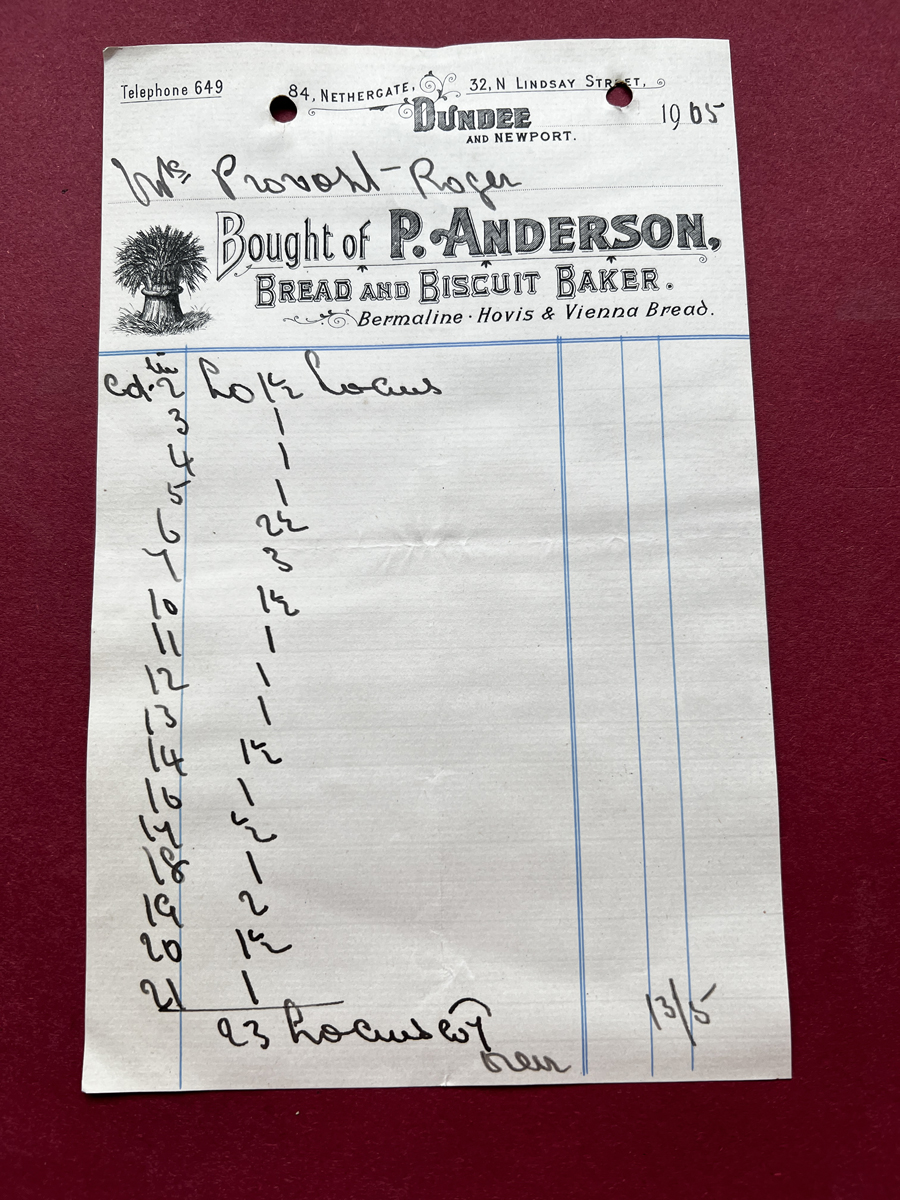 Telephone 649
84, NETHERGATE, 32, N LINDSAY STREET,
DUNDEE
AND NEWPORT.
1905
Mrs Provost-Roger
Bought of P. ANDERSON,
BREAD AND BISCUIT BAKER.
Bermaline · Hovis & Vienna Bread.
2 1½
3 1
4 1
5 1
6 2½
7 3
10 1½
11 1
12 1
13 1
14 1½
16 1
17 ½
18 1
19 2
20 1½
21 1
23 13/5
over